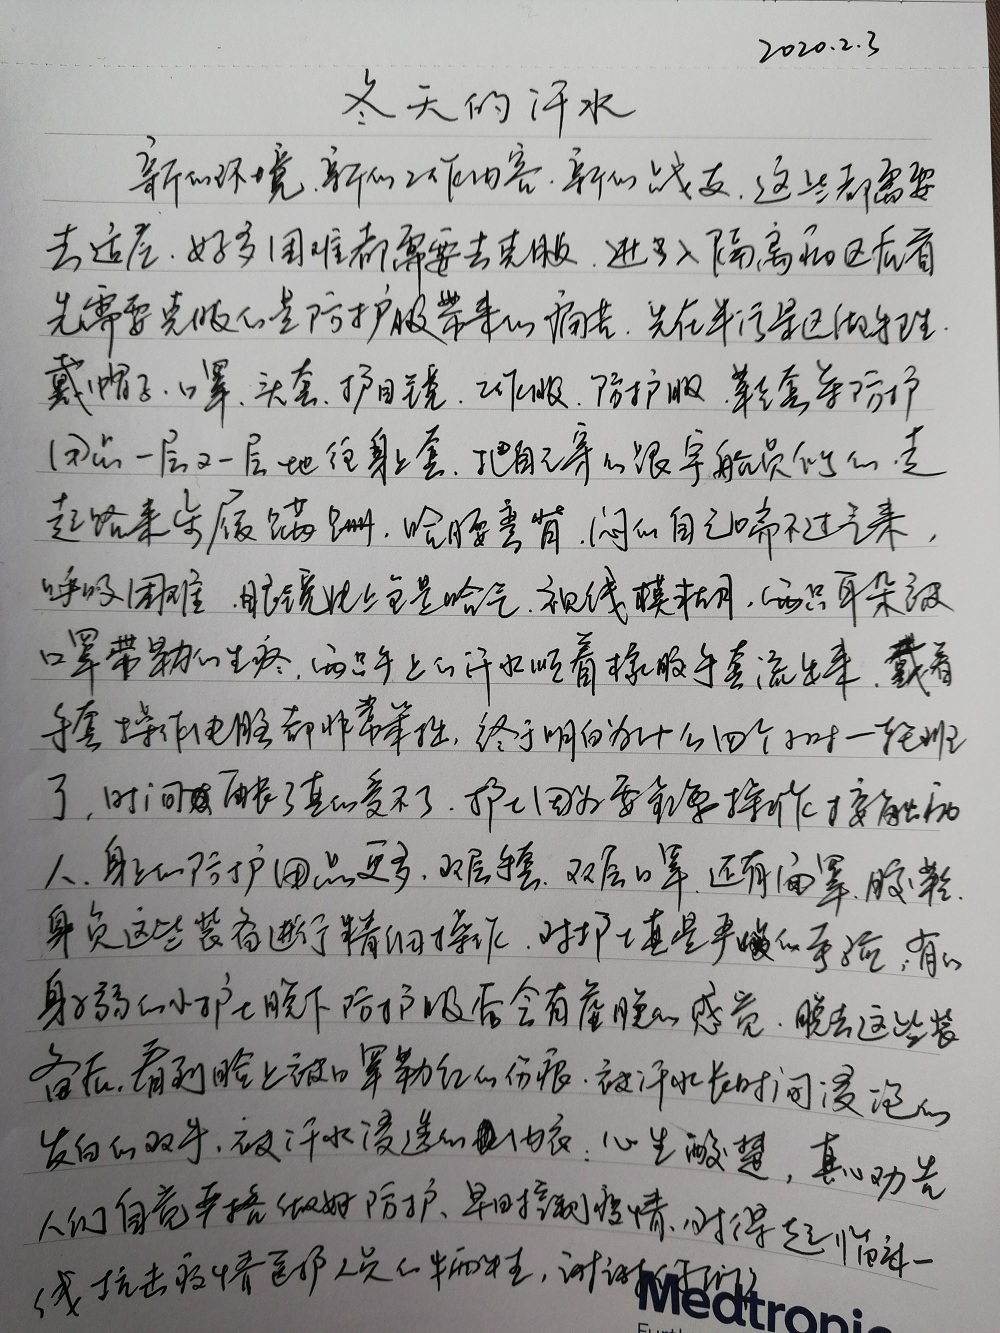 2020.2.3
冬天的汗水
新的环境、新的工作内容、新的战友、这些都需要
去适应、好多困难都需要去克服、进入隔离病区后首
先需要克服的是防护服带来的痛苦、先在半污染区做
戴帽子、口罩、头套、护目镜、工作服、防护服、鞋套等防护
用品一层又一层地往身上套、把自己穿的跟宇航员似的、走
起路来步履蹒跚、哈腰弯背、闷的自己喘不过气来，
呼吸困难、眼镜片上全是哈气、视线模糊、两只耳朵被
口罩带勒的生疼、两只手上的汗水顺着橡胶手套流出来、戴着
手套操作电脑都非常笨拙、终于明白为什么四个小时一轮班
了，时间再长了真的受不了、护士因为要直接操作接触病
人、身上的防护用品更多、双层手套、双层口罩、还有面罩、胶靴、
身负这些装备进行精细操作、对护士真是严峻的考验，有的
身弱的小护士脱下防护服后会有虚脱的感觉、脱去这些装
备后、看到脸上被口罩勒红的伤痕、被汗水长时间浸泡的
发白的双手、被汗水浸透的内衣；心生酸楚，真心劝告
人们自觉严格做好防护、早日控制疫情、对得起临床一
线抗击疫情医护人员的牺牲，谢谢你们
Medtronic